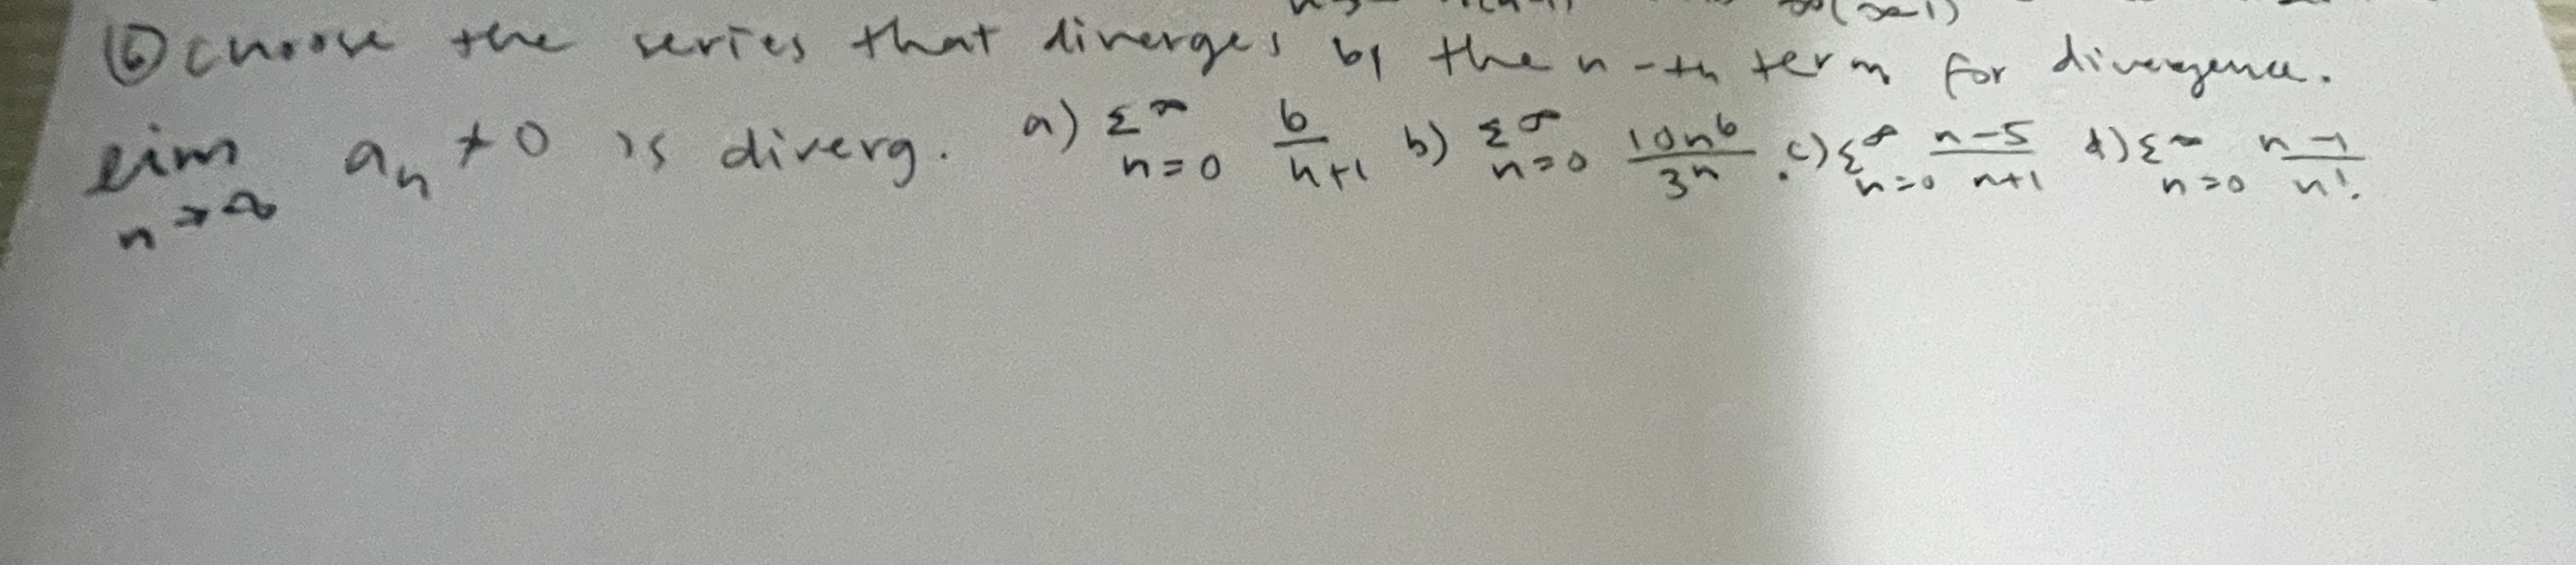 ⑥ choose the series that diverges by the n-th term for divergence.
lim n→∞ aₙ ≠ 0 is diverg. a) Σ^∞ n=0 6/n+1 b) Σ^∞ n=0 10n⁶/3ⁿ . c) Σ^∞ n=0 n-5/n+1 d) Σ^∞ n=0 n-1/n!